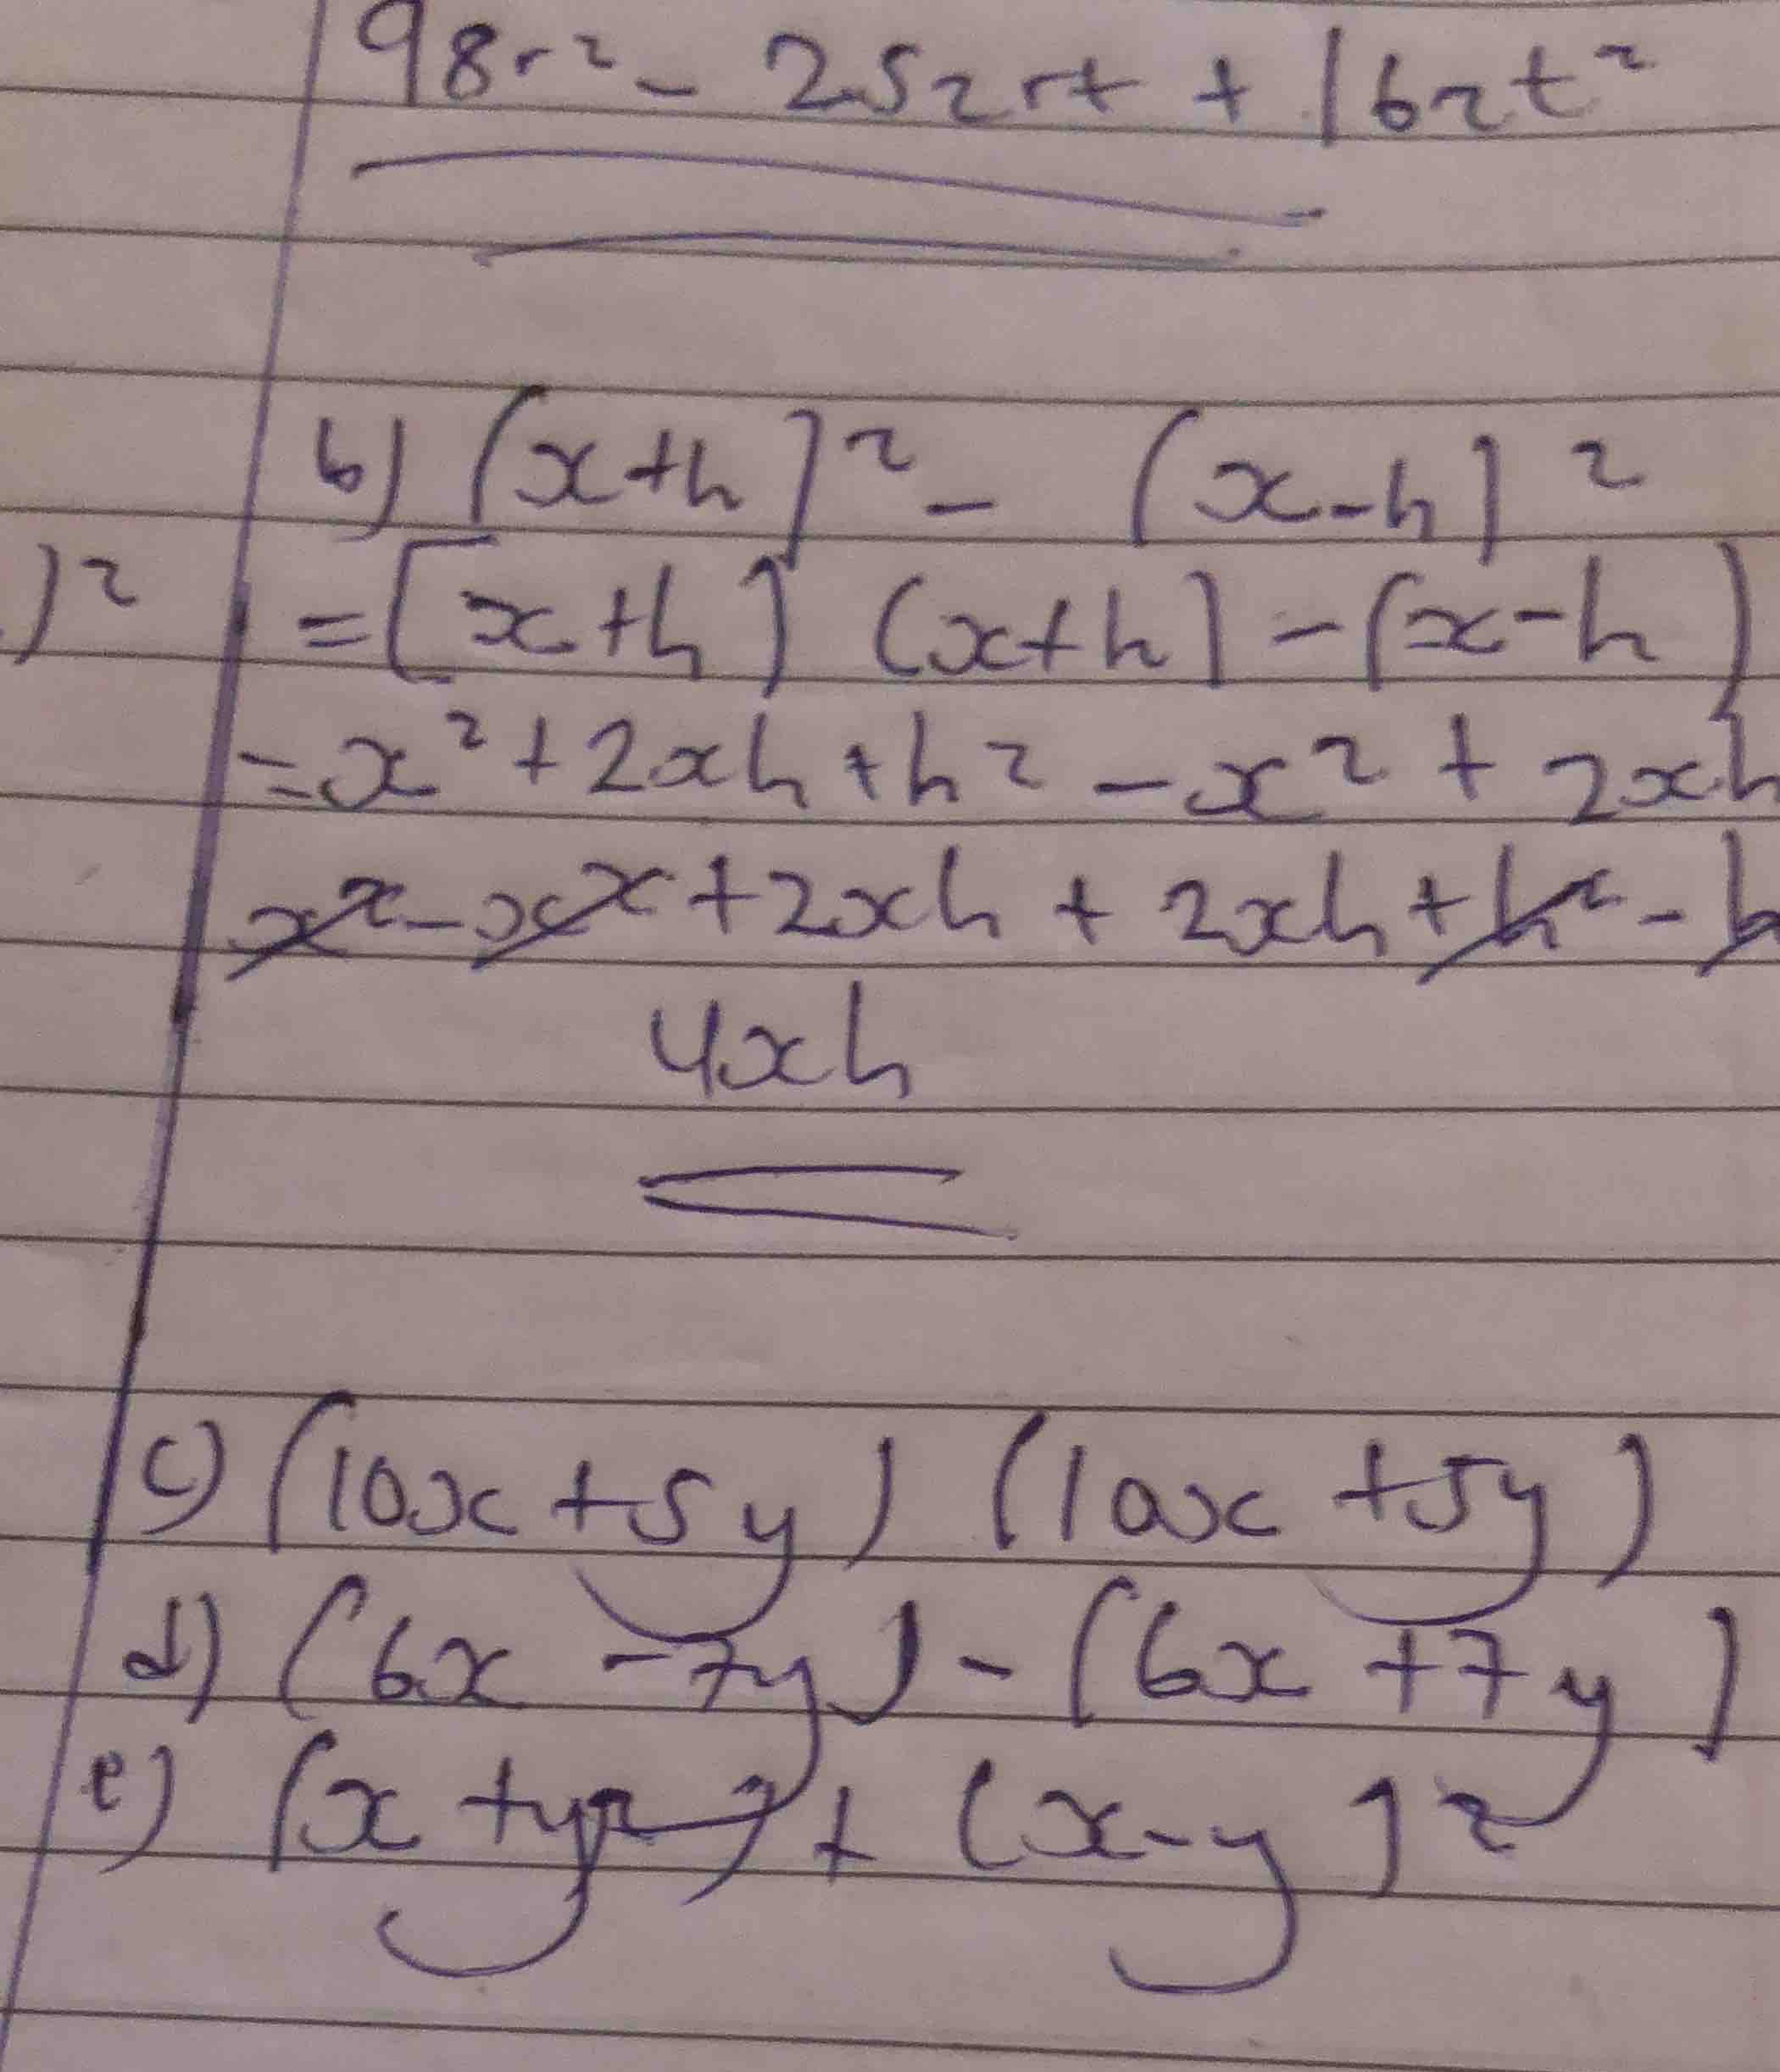 98r² - 252rt + 162t²
b) (x+h)² - (x-h)²
)² = (x+h) (x+h) - (x-h)
= x² + 2xh + h² - x² + 2xh
x² - x² + 2xh + 2xh + h² - h
4xh
c) (10x + 5y) (10x + 5y)
d) (6x - 7y) - (6x + 7y)
e) (x + y²) + (x - y)²